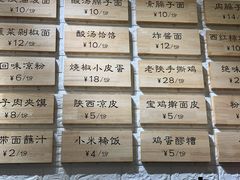 酸汤臊子面
¥10/份
¥10/份
¥10/份
菜剁椒面
¥12/份
酸汤饸饹
¥10/份
炸酱面
¥12/份
西红柿
回味凉粉
¥6/份
烧椒小皮蛋
¥18/份
老陕手撕鸡
¥28/份
凉
子肉夹馍
¥8/份
陕西凉皮
¥5/份
宝鸡擀面皮
¥5/份
带面蘸汁
¥2/份
小米稀饭
¥4/份
鸡蛋醪糟
¥5/份